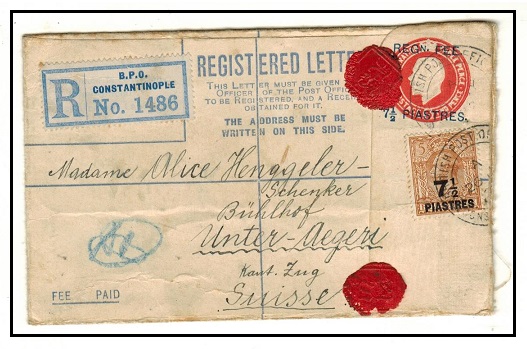 B.P.O.
CONSTANTINOPLE
R No. 1486
REGISTERED LETTER
THIS LETTER MUST BE GIVEN
OFFICER OF THE POST OFFICE
TO BE REGISTERED, AND A RECEIPT
OBTAINED FOR IT.
THE ADDRESS MUST BE
WRITTEN ON THIS SIDE.
REGN. FEE
7½ PIASTRES.
BRITISH POST
7½
PIASTRES
Madame Alice Henggeler-
Schenker
Bühlhof
Unter-Aegeri
Kant. Zug
Suisse
FEE PAID